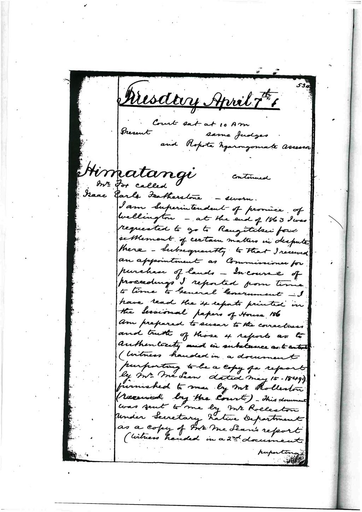 530
Tuesday April 7th
Court sat at 10 AM
Present same Judges
and Ropata Ngarongomate Assessor
Himatangi continued
Mr Fox called
Isaac Earle Featherston - sworn.
I am Superintendent of province of
Wellington - at the end of 1863 I was
requested to go to Rangitikei for
settlement of certain matters in dispute
there - Subsequently to that I received
an appointment as Commissioner for
purchase of lands - In course of
proceedings I reported from time
to time to General Government - I
have read the 4 reports printed in
the Sessional papers of House 186
Am prepared to swear to the correctness
and truth of those 4 reports as to
authenticity and in substance as to
(Witness handed in a document
purporting to be a copy of a report
by Mr McLean dated May 15 - 1849)
furnished to me by Mr Rolleston
(received by the Court) - This document
was sent to me by Mr Rolleston
Under Secretary Native Department
as a copy of Mr McLean's report
(Witness handed in a 2nd document
purporting